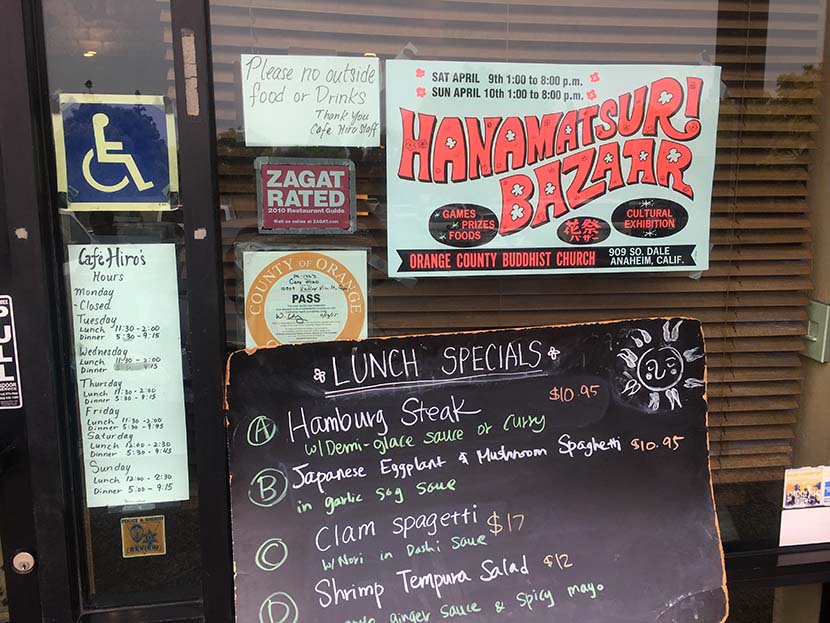 Please no outside
food or Drinks
Thank You
Cafe Hiro Staff
SAT APRIL 9th 1:00 to 8:00 p.m.
SUN APRIL 10th 1:00 to 8:00 p.m.
HANAMATSURI
BAZAAR
GAMES
PRIZES
FOODS
花祭
バザー
CULTURAL
EXHIBITION
ORANGE COUNTY BUDDHIST CHURCH
909 SO. DALE
ANAHEIM, CALIF.
ZAGAT
RATED
2010 Restaurant Guide
Visit us online at ZAGAT.com
COUNTY OF ORANGE
PASS
Cafe Hiro's
Hours
Monday
- Closed
Tuesday
Lunch 11:30 - 2:00
Dinner 5:30 - 9:15
Wednesday
Lunch 11:30 - 2:00
Dinner 9:15
Thursday
Lunch 11:30 - 2:00
Dinner 5:30 - 9:15
Friday
Lunch 11:30 - 2:00
Dinner 5:30 - 9:45
Saturday
Lunch 12:00 - 2:30
Dinner 5:30 - 9:45
Sunday
Lunch 12:00 - 2:30
Dinner 5:00 - 9:15
PULL
POLICE & SHERIFF
REVIEW
LUNCH SPECIALS
A Hamburg Steak $10.95
w/ Demi-glace sauce or curry
B Japanese Eggplant & Mushroom Spaghetti $10.95
in garlic soy sauce
C Clam spagetti $17
w/ Nori in Dashi sauce
D Shrimp Tempura Salad $12
ginger sauce & spicy mayo